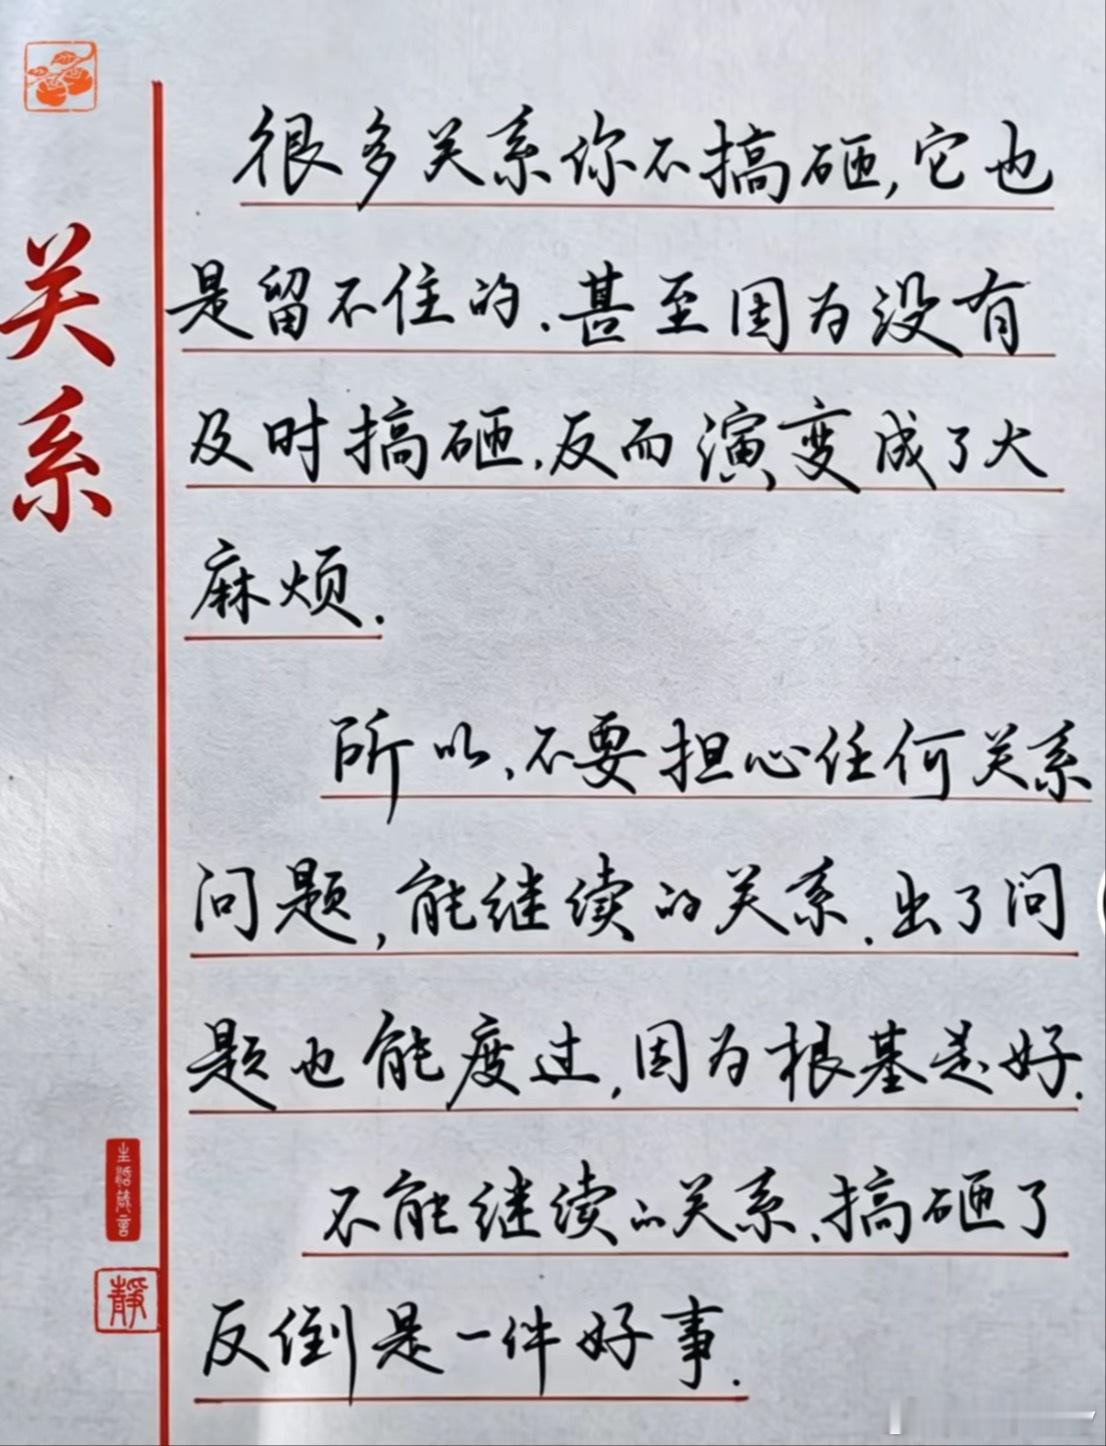 关系
很多关系你不搞砸,它也
是留不住的.甚至因为没有
及时搞砸.反而演变成了大
麻烦.
所以.不要担心任何关系
问题,能继续的关系.出了问
题也能度过,因为根基是好.
不能继续的关系.搞砸了
反倒是一件好事.
生活箴言
静